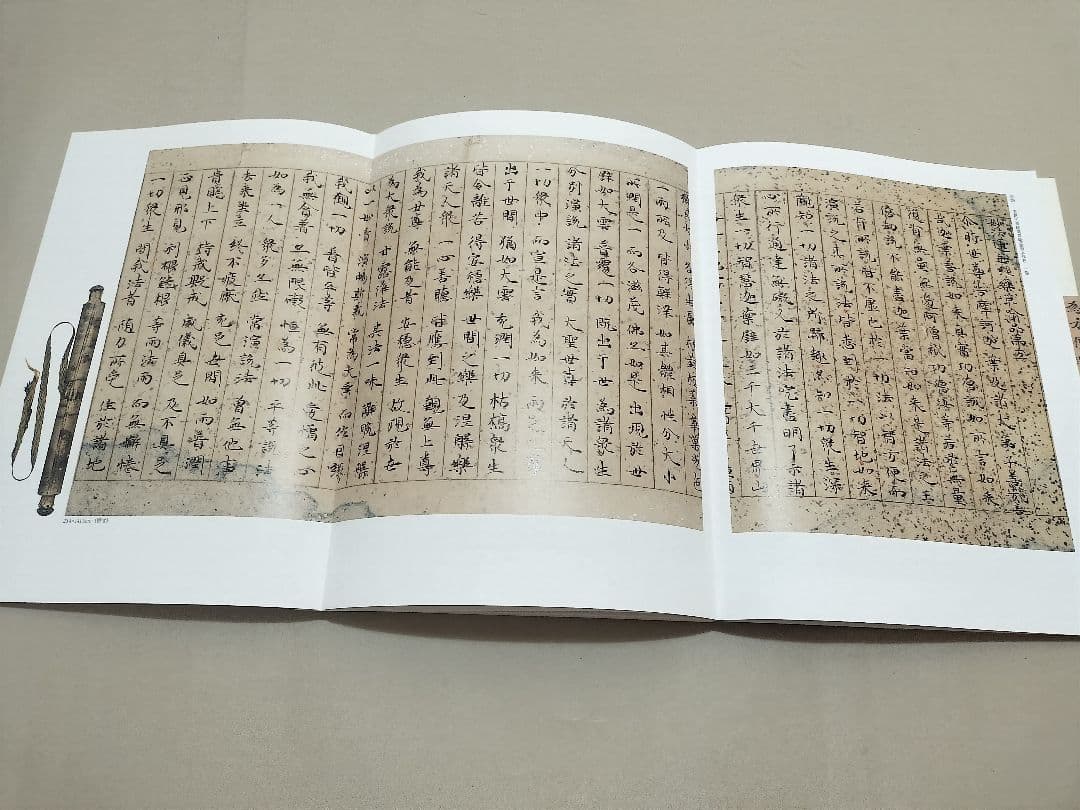 妙法蓮華經藥草喻品第五
尒時世尊告摩訶迦葉及諸大弟子善哉善
哉迦葉善說如來真實功德誠如所言如來
復有無量無邊阿僧祇功德汝等若於無量
億劫說不能盡迦葉當知如來是諸法之王
若有所說皆不虛也於一切法以智方便而
演說之其所說法皆悉到於一切智地如來
觀知一切諸法之所歸趣亦知一切衆生深
心所行通達無礙又於諸法究盡明了示諸
衆生一切智慧迦葉譬如三千大千世界山
一雨所及 皆得鮮澤 如其體相 性分大小
所潤是一 而各滋茂 佛亦如是 出現於世
譬如大雲 普覆一切 既出于世 為諸衆生
分別演說 諸法之實 大聖世尊 於諸天人
一切衆中 而宣是言 我為如來 兩足之尊
出于世間 猶如大雲 充潤一切 枯槁衆生
皆令離苦 得安隱樂 世間之樂 及涅槃樂
諸天人衆 一心善聽 皆應到此 覲無上尊
我為世尊 無能及者 安隱衆生 故現於世
為大衆說 甘露淨法 其法一味 解脫涅槃
以一妙音 演暢斯義 常為大乘 而作因緣
我觀一切 普皆平等 無有彼此 愛憎之心
我無貪著 亦無限礙 恒為一切 平等說法
如為一人 衆多亦然 常演說法 曾無他事
去來坐立 終不疲厭 充足世間 如雨普潤
貴賤上下 持戒毀戒 威儀具足 及不具足
正見邪見 利根鈍根 等雨法雨 而無懈惓
一切衆生 聞我法者 隨力所受 住於諸地